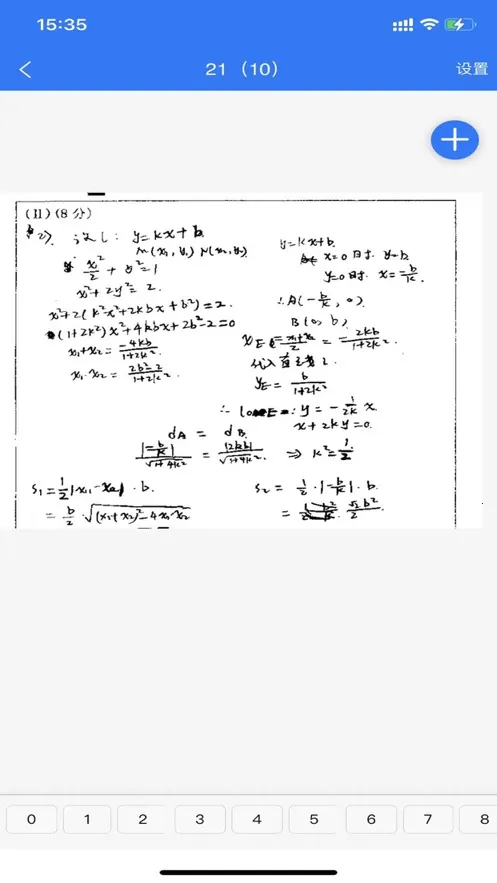 15:35
21（10）
设置
(II)(8分)
(2) 设 l: y=kx+b.
M(x₁, y₁) N(x₂, y₂)
x²/2 + y²=1
x²+2y²=2.
x²+2(k²x²+2kbx+b²)=2.
(1+2k²)x²+4kbx+2b²-2=0
x₁+x₂=-4kb/1+2k².
x₁·x₂=2b²-2/1+2k².
y=kx+b.
x=0时. y=b.
y=0时. x=-b/k.
∴A(-b/k, 0)
B(0, b)
x_E=x₁+x₂/2=-2kb/1+2k².
代入直线 l.
y_E=b/1+2k²
∴ l_OE: y=-1/2k x
x+2ky=0.
d_A = d_B
|-b/k|/√1+4k² = |2kb|/√1+4k² ⇒ k²=1/2
S₁=1/2|x₁-x₂|·b.
=b/2·√(x₁+x₂)²-4x₁x₂
S₂=1/2·|-b/k|·b.
=√2b²/2
0
1
2
3
4
5
6
7
8